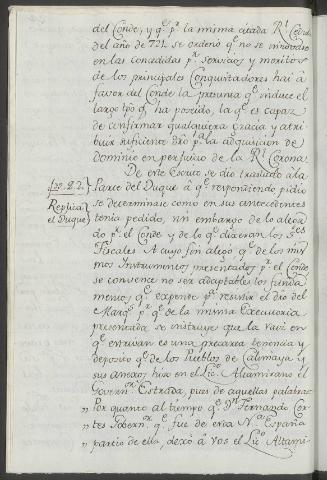 del Conde, y q.e p.r la misma citada R.l Cedula
del año de 721. se ordenó q.e no se innovase
en las concedidas p.r servicios y meritos
de los principales Conquistadores hai á
favor del Conde la presunta q.e induce el
largo tpo q.e ha poseido, la q.e es capaz
de confirmar qualquiera Gracia y atri
buir suficiente dro p.a la adquisicion de
dominio en perjuicio de la R.l Corona.
De este Escrito se dio traslado á la
Parte del Duque á q.e respondiendo, pidió
se determinase como en sus antecedentes
tenia pedido, sin embargo de lo alega
do p.r el Conde y de lo q.e dixeran los S.res
Fiscales. A cuyo fin alegó q.e de los mis
mos Instrumentos presentados p.r el Conde
se convence no ser adaptables los funda
mentos q.e expende p.a resistir el dro del
Marq.s p.r q.e de la misma Executoria
presentada se instruye que la raiz en
q.e estrivan es una precarea tenencia y
deposito q.e de los Pueblos de Calimaya y
sus anexos hizo en el Liz.do Altamirano el
Govern.r Estrada, pues de aquellas palabras
„ Por quanto al tiempo q.e D.n Fernando Cor
„ tes Govern.r q.e fue de esta N.a España
„ partió de ella, dexó á vos el Liz.do Altami
fol. 22.
Replica
el Duque